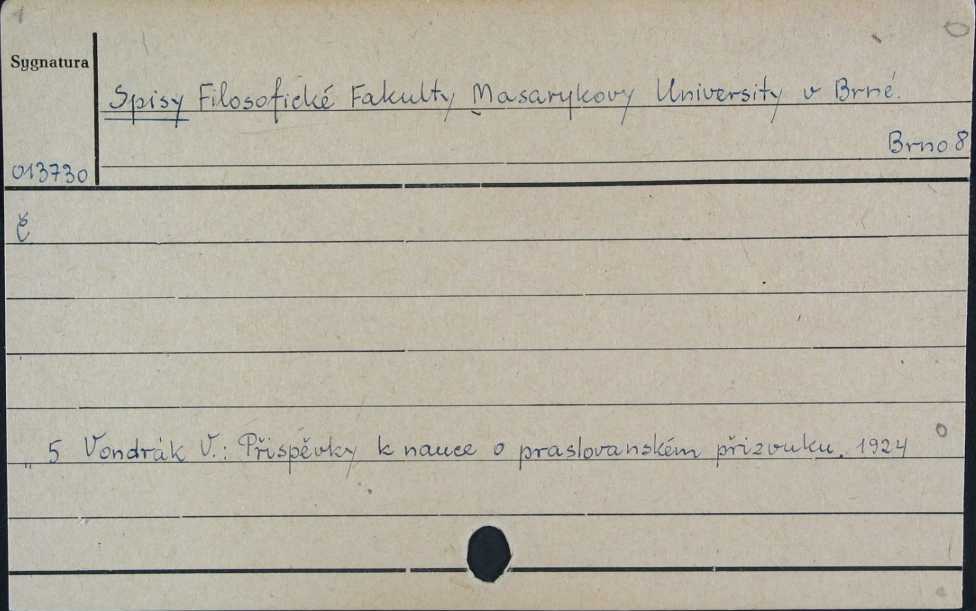 Sygnatura
Spisy Filosofické Fakulty Masarykovy University v Brné.
Brno 8
013730
č
„ 5 Vondrák V.: Přispěvky k nauce o praslovanském přizvuku. 1924